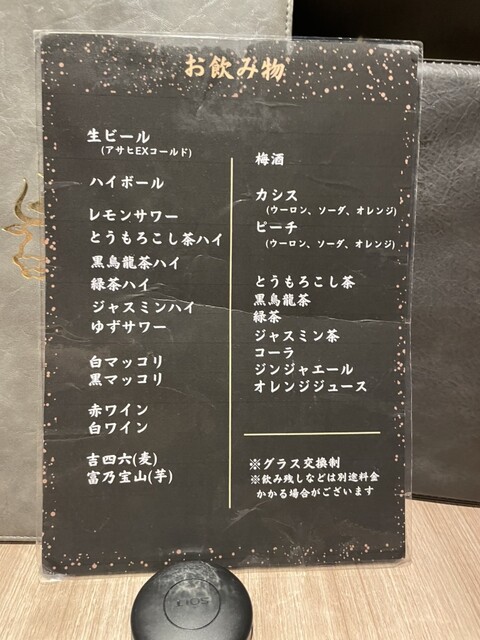 お飲み物
生ビール
(アサヒEXコールド)
ハイボール
レモンサワー
とうもろこし茶ハイ
黒烏龍茶ハイ
緑茶ハイ
ジャスミンハイ
ゆずサワー
白マッコリ
黒マッコリ
赤ワイン
白ワイン
吉四六(麦)
富乃宝山(芋)
梅酒
カシス
(ウーロン、ソーダ、オレンジ)
ピーチ
(ウーロン、ソーダ、オレンジ)
とうもろこし茶
黒烏龍茶
緑茶
ジャスミン茶
コーラ
ジンジャエール
オレンジジュース
※グラス交換制
※飲み残しなどは別途料金
かかる場合がございます
CIO